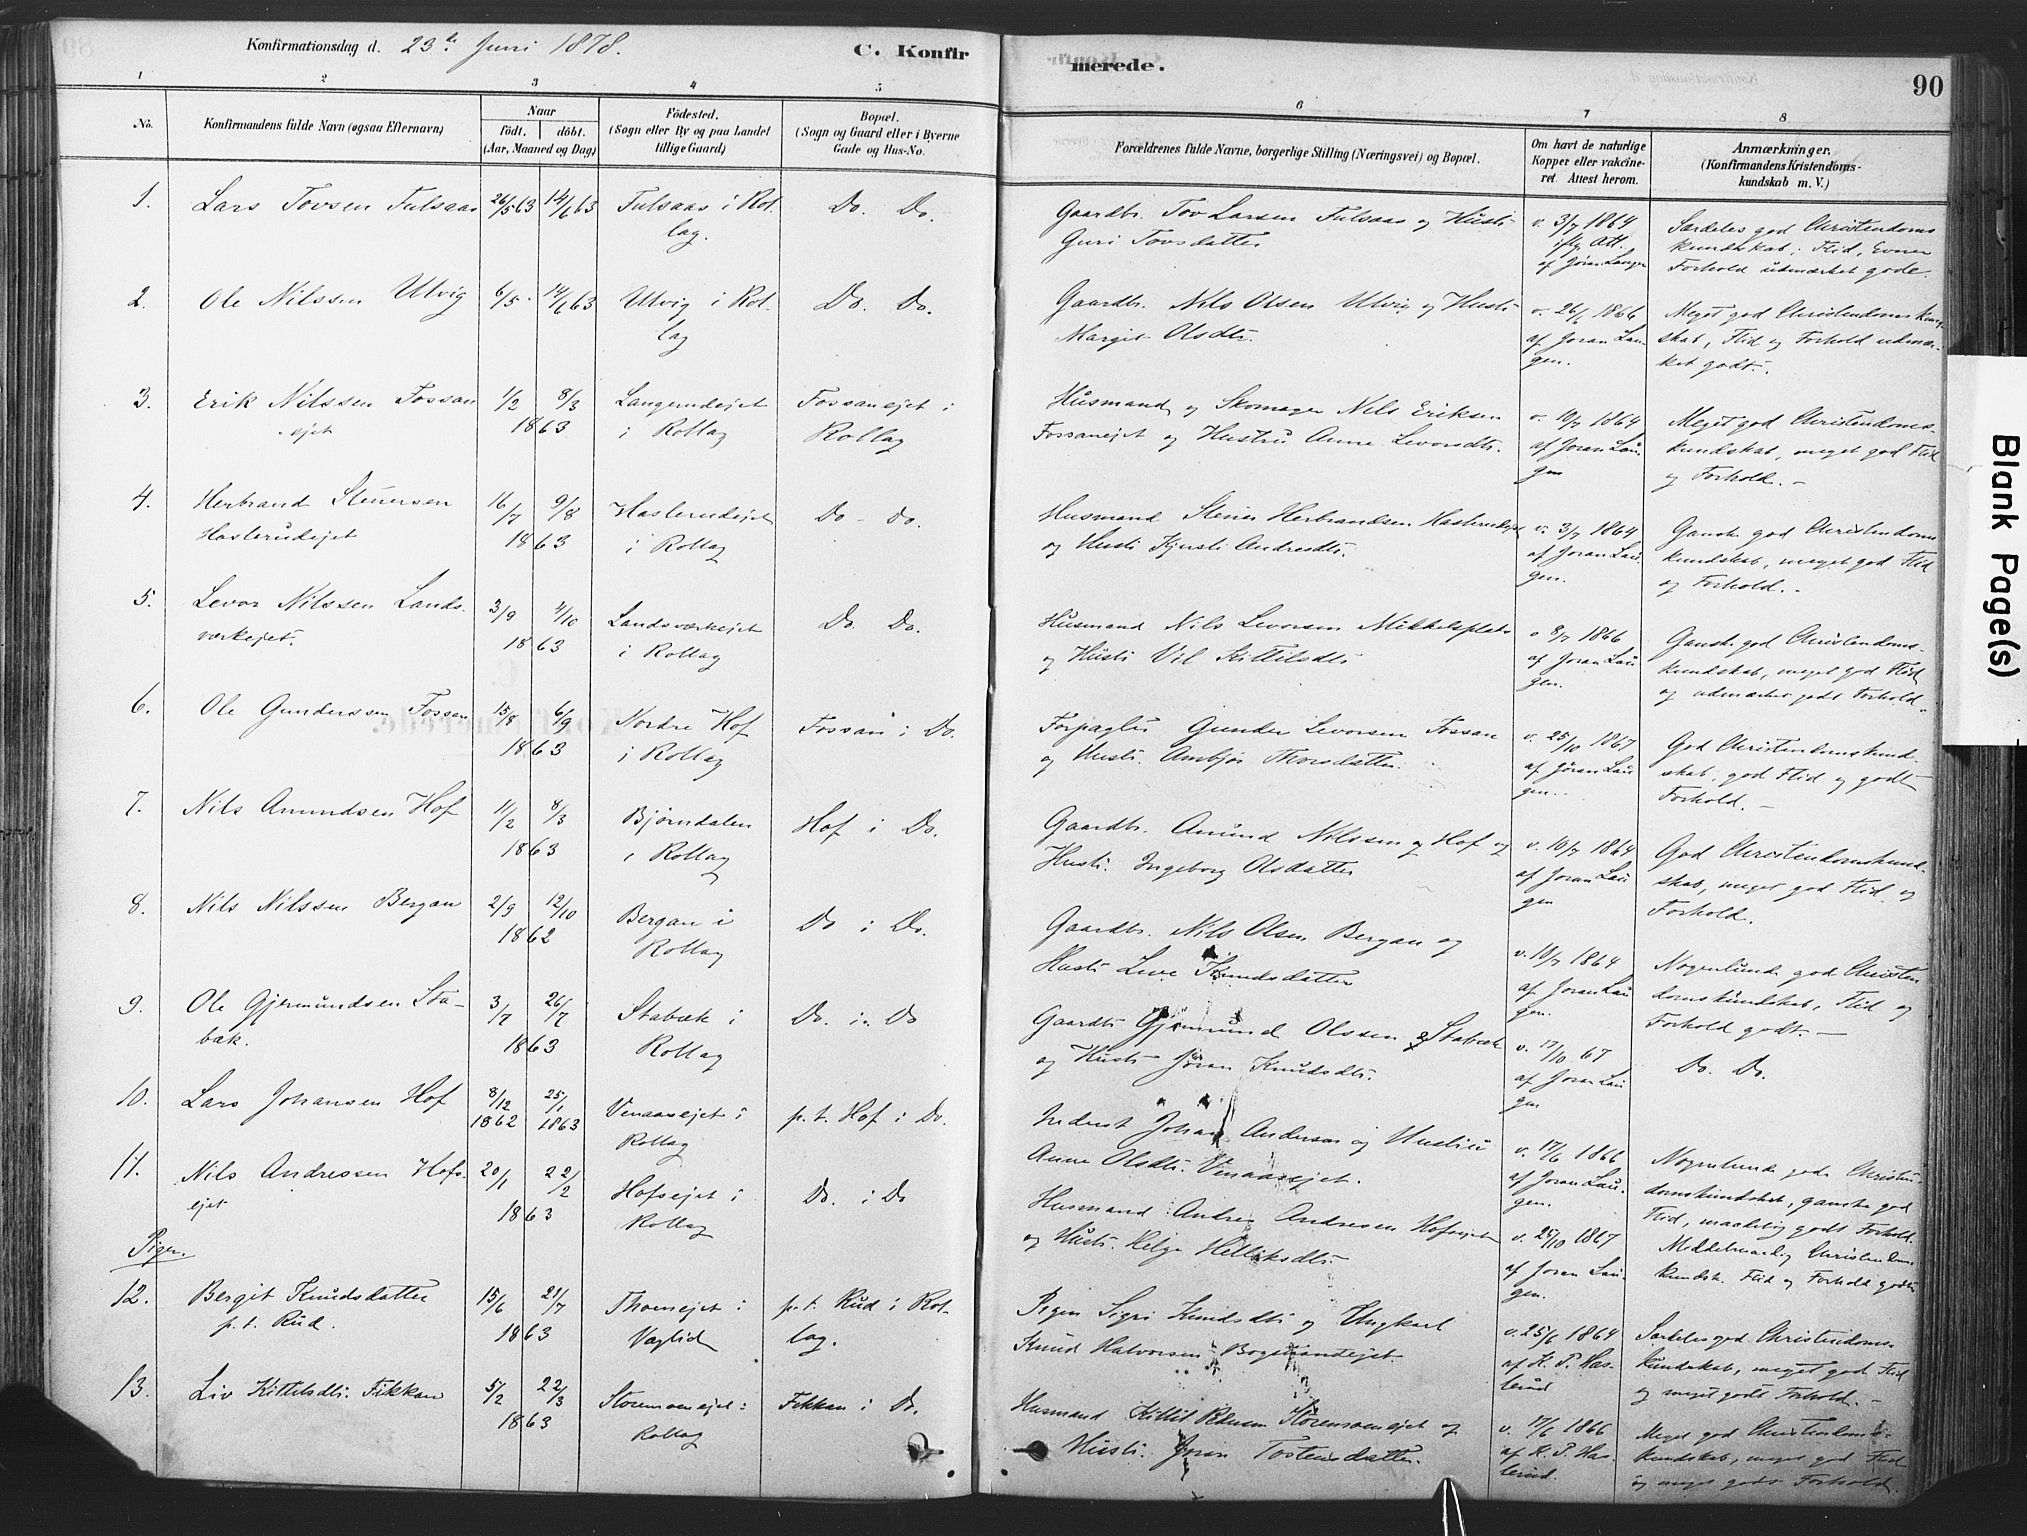 Konfirmationsdag d. 23de Juni 1878.
C. Konfir
merede.
90
1 2 3 4 5 6 7 8
No.
Konfirmandens fulde Navn (ogsaa Efternavn)
Naar
født. døbt.
(Aar, Maaned og Dag)
Fødested.
(Sogn eller By og paa Landet
tillige Gaard)
Bopæl.
(Sogn og Gaard eller i Byerne
Gade og Hus-No.
Forældrenes fulde Navne, borgerlige Stilling (Næringsvei) og Bopæl.
Om havt de naturlige
Kopper eller vakcine-
ret. Attest herom.
Anmærkninger.
(Konfirmandens Kristendoms-
kundskab m. V.)
1. Lars Tovsen Fulsaas 26/5 63 14/6 63 Fulsaas i Rol- Do. Do.
lag.
Gaardbr. Tov Larsen Fulsaas og Hustr
Guri Tovsdatter
v. 3/7 1864
iflg. Att.
af Jøran Laugen
Særdeles god Christendoms
kundskab; Flid, Evner
Forhold udmærket gode.
2. Ole Nilssen Ulvig 6/5 14/6 63 Ulvig i Rol- Do. Do.
lag
Gaardbr. Nils Olsen Ulvig og Hustr
Margit Olsdtr.
v. 26/6 1866
af Joran Lau-
gen.
Meget god Christendomskund-
skab, Flid og Forhold udmær-
ket godt.
3. Erik Nilssen Fossan 1/2 8/3 Langerudejet Fossanejet i
ejet 1863 i Rollag Rollag
Husmand og Skomager Nils Eriksen
Fossanejet og Hustru Anne Levorsdtr.
v. 10/7 1864
af Joran Lau-
gen
Meget god Christendoms-
kundskab, meget god Flid
og Forhold.
4. Herbrand Steinersen 16/7 9/8 Haslerudejet Do. do.
Haslerudejet 1863 i Rollag
Husmand Steiner Herbrandsen Haslerudejet
og Hustr Kjersti Andresdtr.
v. 3/7 1864
af Joran Lau-
gen.
Ganske god Christendoms
kundskab, meget god Flid
og Forhold.
5. Levor Nilssen Lands- 3/9 4/10 Landsværkejet Do. Do.
værkejet. 1863 i Rollag
Husmand Nils Levorsen Mikkelsplads
og Hustr Vil Kittilsdtr
v 8/7 1866
af Joran Lau-
gen.
Ganske god Christendoms-
kundskab, meget god Flid
og udmærket godt Forhold.
6. Ole Gunderssen Fossan 15/8 6/9 Nordre Hof Fossan i Do.
1863 i Rollag
Forpagter Gunder Levorsen Fossan
og Hustr. Ambjør Thorsdatter.
v. 25/10 1867
af Jøran Lau
gen.
God Christendomskund-
skab, god Flid og godt
Forhold.
7. Nils Amundsen Hof 11/2 8/3 Bjørndalen Hof i Do.
1863 i Rollag
Gaardbr. Amund Nilssen Hof og
Hustr. Ingeborg Olsdatter
v. 10/7 1864
af Joran Lau
gen
God Christendomskund-
skab, meget god Flid og
Forhold.
8. Nils Nilssen Bergan 2/9 12/10 Bergan i Do i Do.
1862 Rollag
Gaardbr. Nils Olsen Bergan og
Hustr Live Knudsdatter
v. 10/7 1864
af Joran Lau
gen.
Nogenlunde god Christen
domskundskab, Flid og
Forhold godt.
9. Ole Gjermundsen Sta- 3/7 26/7 Stabæk i Do. i Do
bæk. 1863 Rollag
Gaardbr Gjermund Olssen Stabæk
og Hustr Jøran Knudsdtr.
v. 17/10 67
af Joran Lau
gen
Do. Do.
10. Lars Johansen Hof 8/12 25/1 Venaasejet i p.t. Hof i Do.
1862 1863 Rollag
Inderst Johan Andersen og Hustru
Anne Olsdtr. Venaasejet.
v. 17/6 1866
af Joran Lau-
gen.
Nogenlunde god Christen-
domskundskab, ganske god
Flid, maadelig godt Forhold.
11. Nils Andressen Hofs- 20/1 22/2 Hofsejet i Do. i Do
ejet 1863 Rollag
Husmand Andres Andresen Hofsejet
og Hustr. Helga Helliksdtr.
v. 25/10 1867
af Joran Lau-
gen.
Middelmaadig Christendoms
kundsk. Flid og Forhold godt
Piger.
12. Bergit Knudsdatter 15/6 21/7 Thomejet i p.t. Rud i Rol-
p.t. Rud. 1863 Væglid lag.
Pigen Sigri Knudsdtr og Ungkarl
Knud Halvorsen Bogstrandejet.
v. 25/6 1864
af K. P. Has-
lerud
Særdeles god Christendoms
kundskab, meget god Flid
og meget godt Forhold.
13. Liv Kittilsdtr. Fikkan 5/2 22/3 Storemoenejet i Fikkan i Do.
1863 Rollag
Husmand Kittil Pedersen Storemoenejet og
Hustr. Jøran Tostensdatter.
v. 17/6 1866
af K. P. Has-
lerud.
Meget god Christendoms-
kundskab, meget god Flid
og meget godt Forhold.
Blank Page(s)